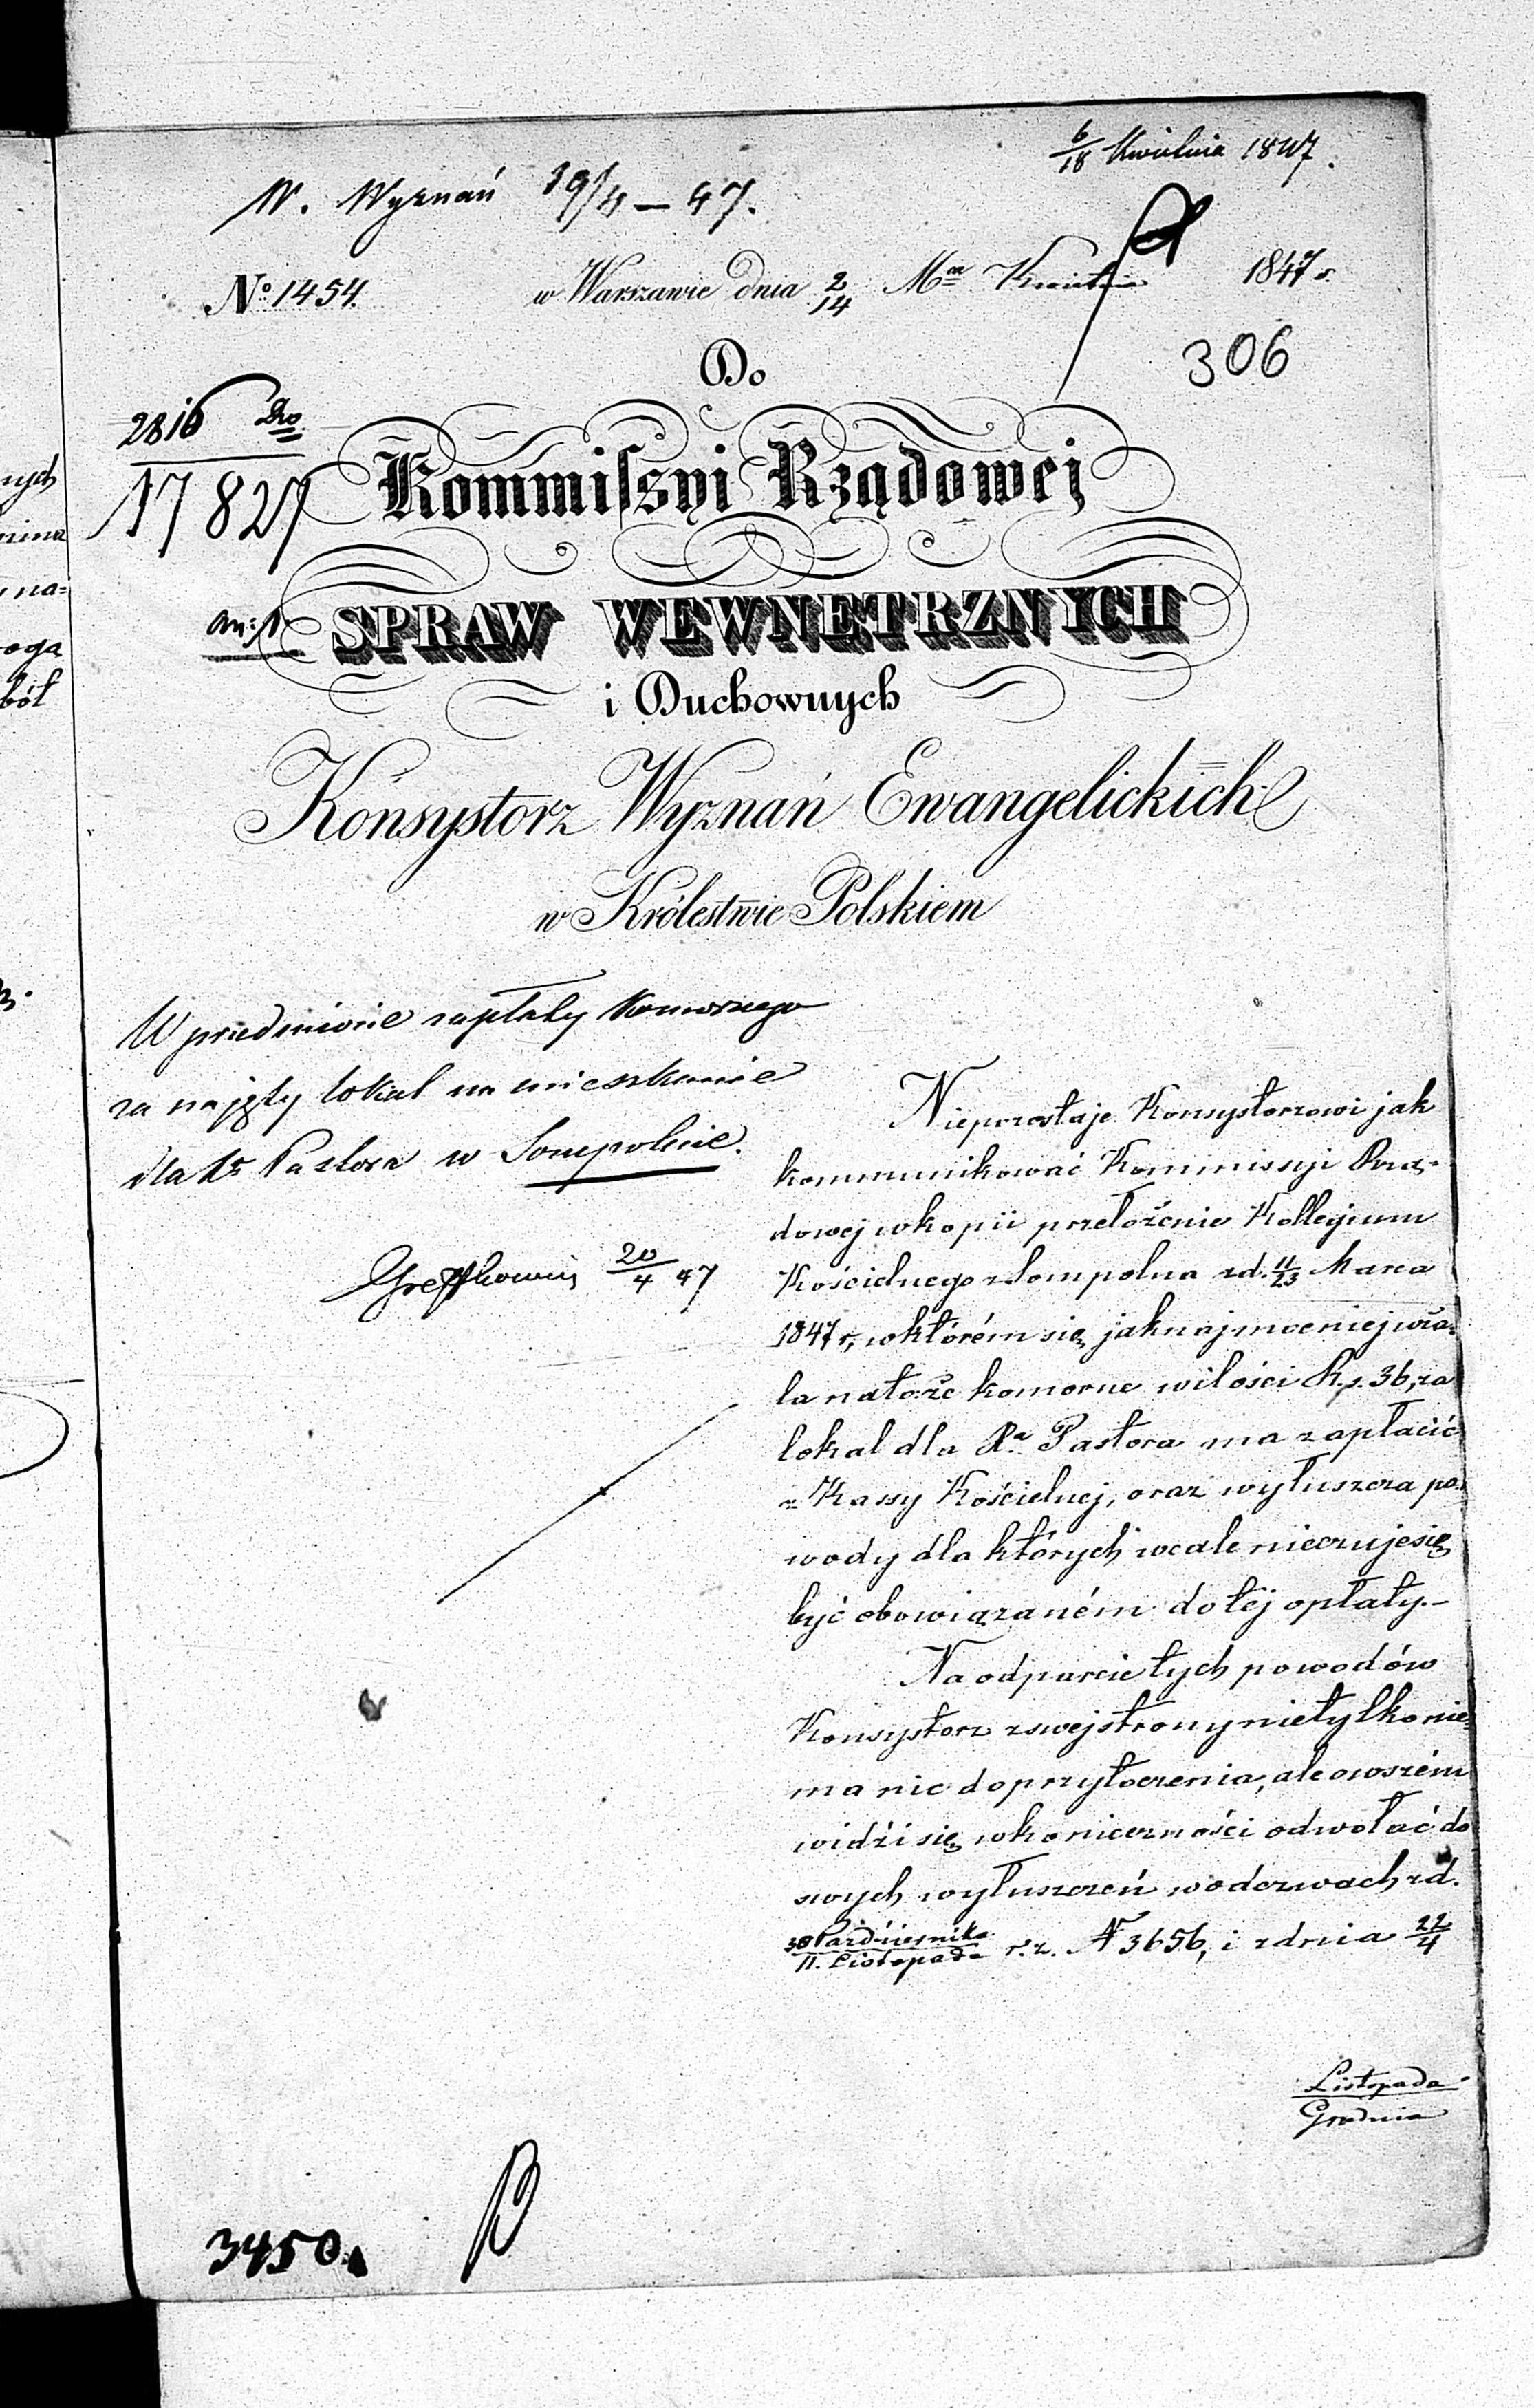 6/18 Kwietnia 1847.
W. Wyznań 19/4 – 47.
No 1454. w Warszawie dnia 2/14 Mca Kwietnia 1847 r.
306
Do
2816
17827
Kommissyi Rządowej
an: 1
SPRAW WEWNĘTRZNYCH
i Duchownych
Konsystorz Wyznań Ewangelickich
w Królestwie Polskiem
W przedmiocie zapłaty komornego
za najęty lokal na mieszkanie
dla Xs Pastora w Sompolnie.
20/4 47
Niepozostaje Konsystorzowi jak
kommunikować Kommissyi Rzą-
dowej w kopii przełożenie Kollegium
Kościelnego z Sompolna z d. 11/23 Marca
1847 r, w którém się jaknajmocniej uża-
la na to: że komorne w ilości R.s. 36, za
lokal dla Xa Pastora ma zapłacić
z Kassy Kościelnej, oraz wyłuszcza po-
wody dla których wcale nieczuje się
być obowiązaném do téj opłaty.–
Na odparcie tych powodów
Konsystorz z swej strony nietylko nie
ma nic do przytoczenia, ale owszém
widzi się w konieczności odwołać do
swych wyłuszczeń w odezwach z d.
30 Października/11. Listopada r. z. N 3656, i z dnia 22/4
Listopada/Grudnia
3450.
nych
na=
oga